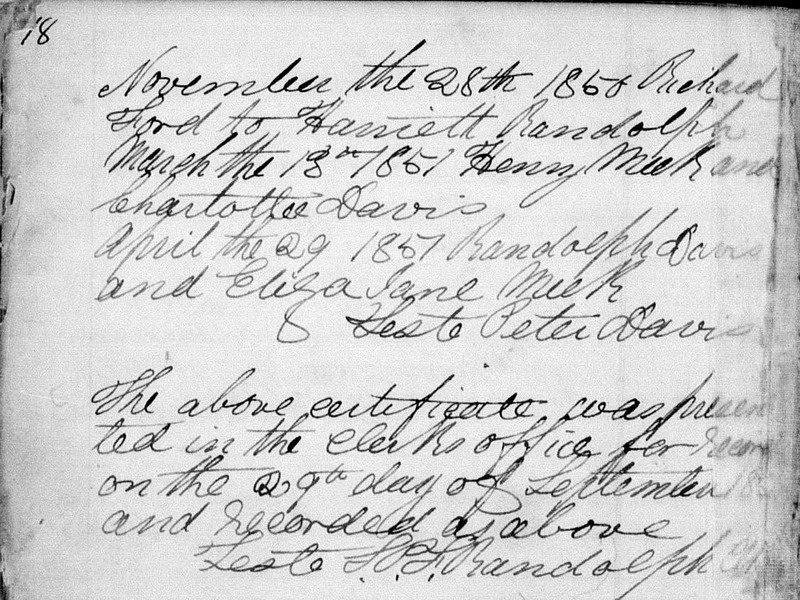 18
November the 28th 1850 Richard
Ford to Harriett Randolph
March the 13th 1851 Henry Meek and
Charlottie Davis
April the 29 1851 Randolph Davis
and Eliza Jane Meek
Teste Peter Davis
The above certificate was presen
ted in the clerks office for Recor
on the 29th day of September 18
and Recorded as above
Teste Randolph